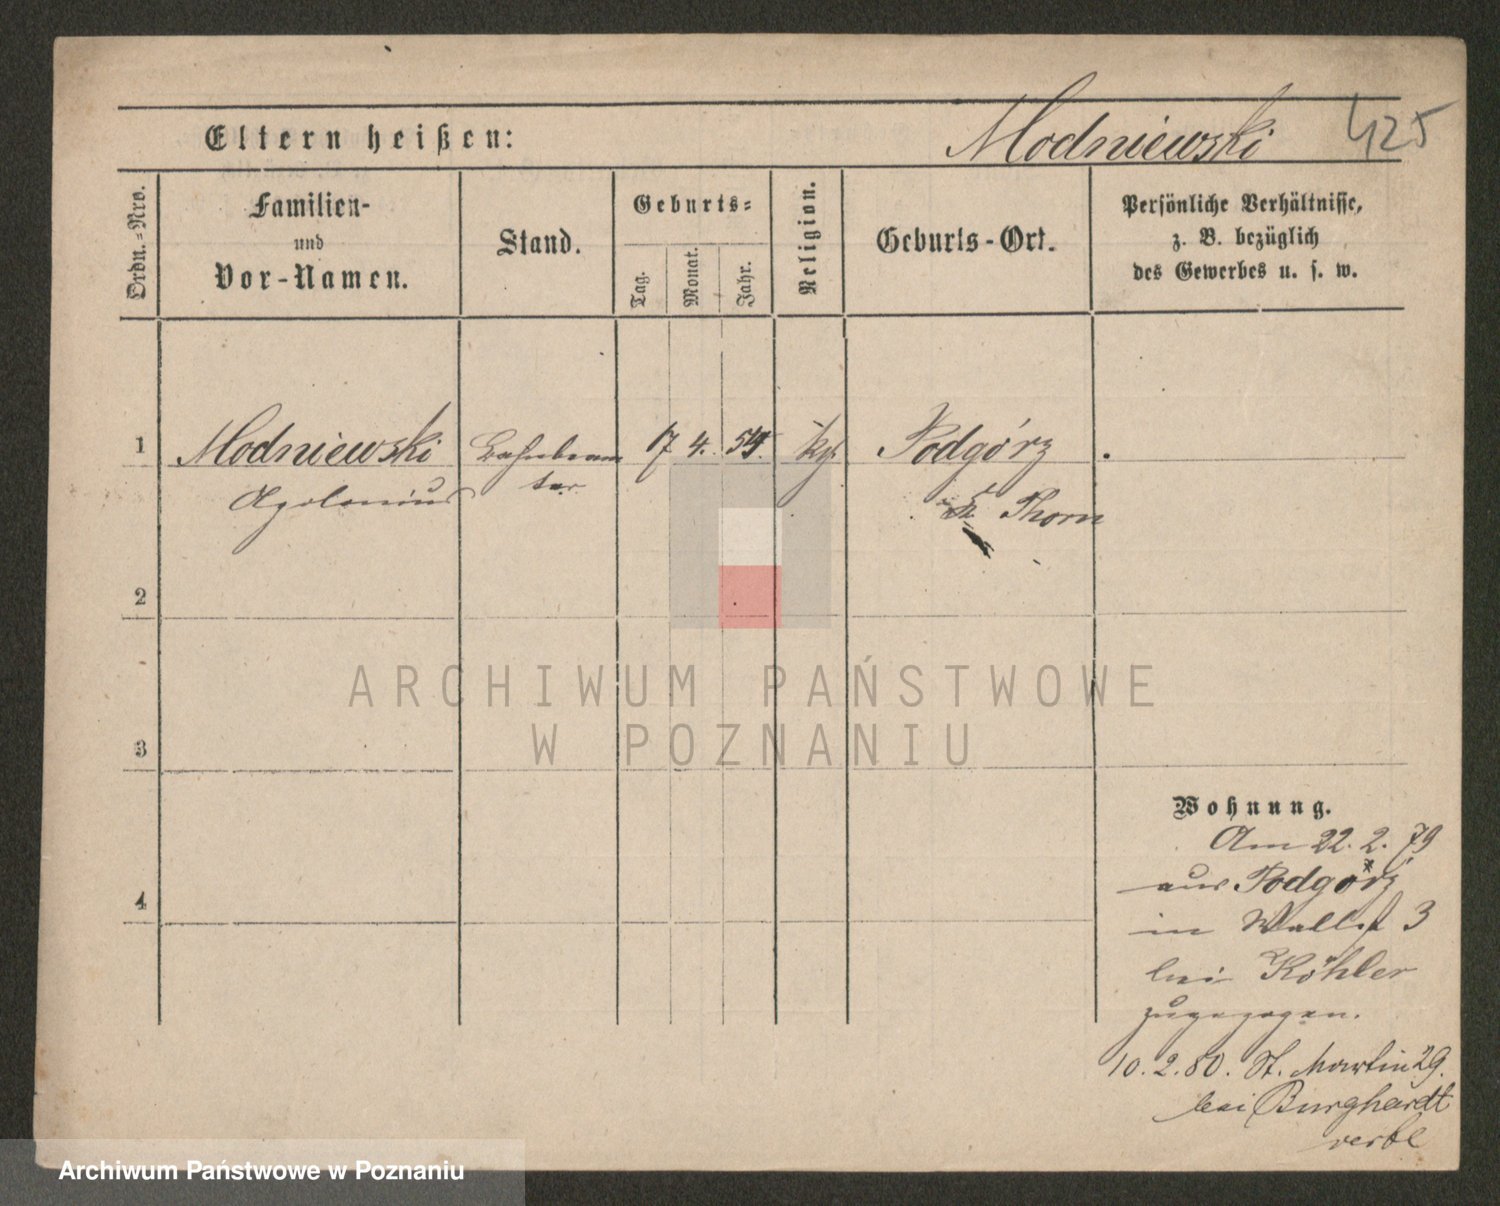 Eltern heißen:
Modniewski
425
Ordn.=Nro.
Familien-
und
Vor-Namen.
Stand.
Geburts=
Tag.
Monat.
Jahr.
Religion.
Geburts-Ort.
Persönliche Verhältnisse,
z. B. bezüglich
des Gewerbes u. s. w.
1
Modniewski
Bahnbeam
7 4. 54.
Podgórz
Apolonius
ter
Thorn
2
ARCHIWUM PAŃSTWOWE
W POZNANIU
3
Wohnung.
Am 22. 2. 79
aus Podgórz
4
in Wallst 3
bei Köhler
zugezogen.
10. 2. 80. St. Martin 29.
bei Burghardt
Archiwum Państwowe w Poznaniu